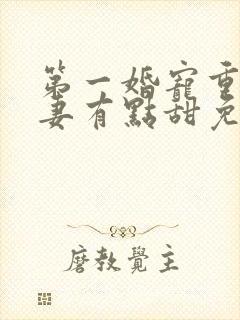 第一婚寵重
妻有點甜免
磨教覺主